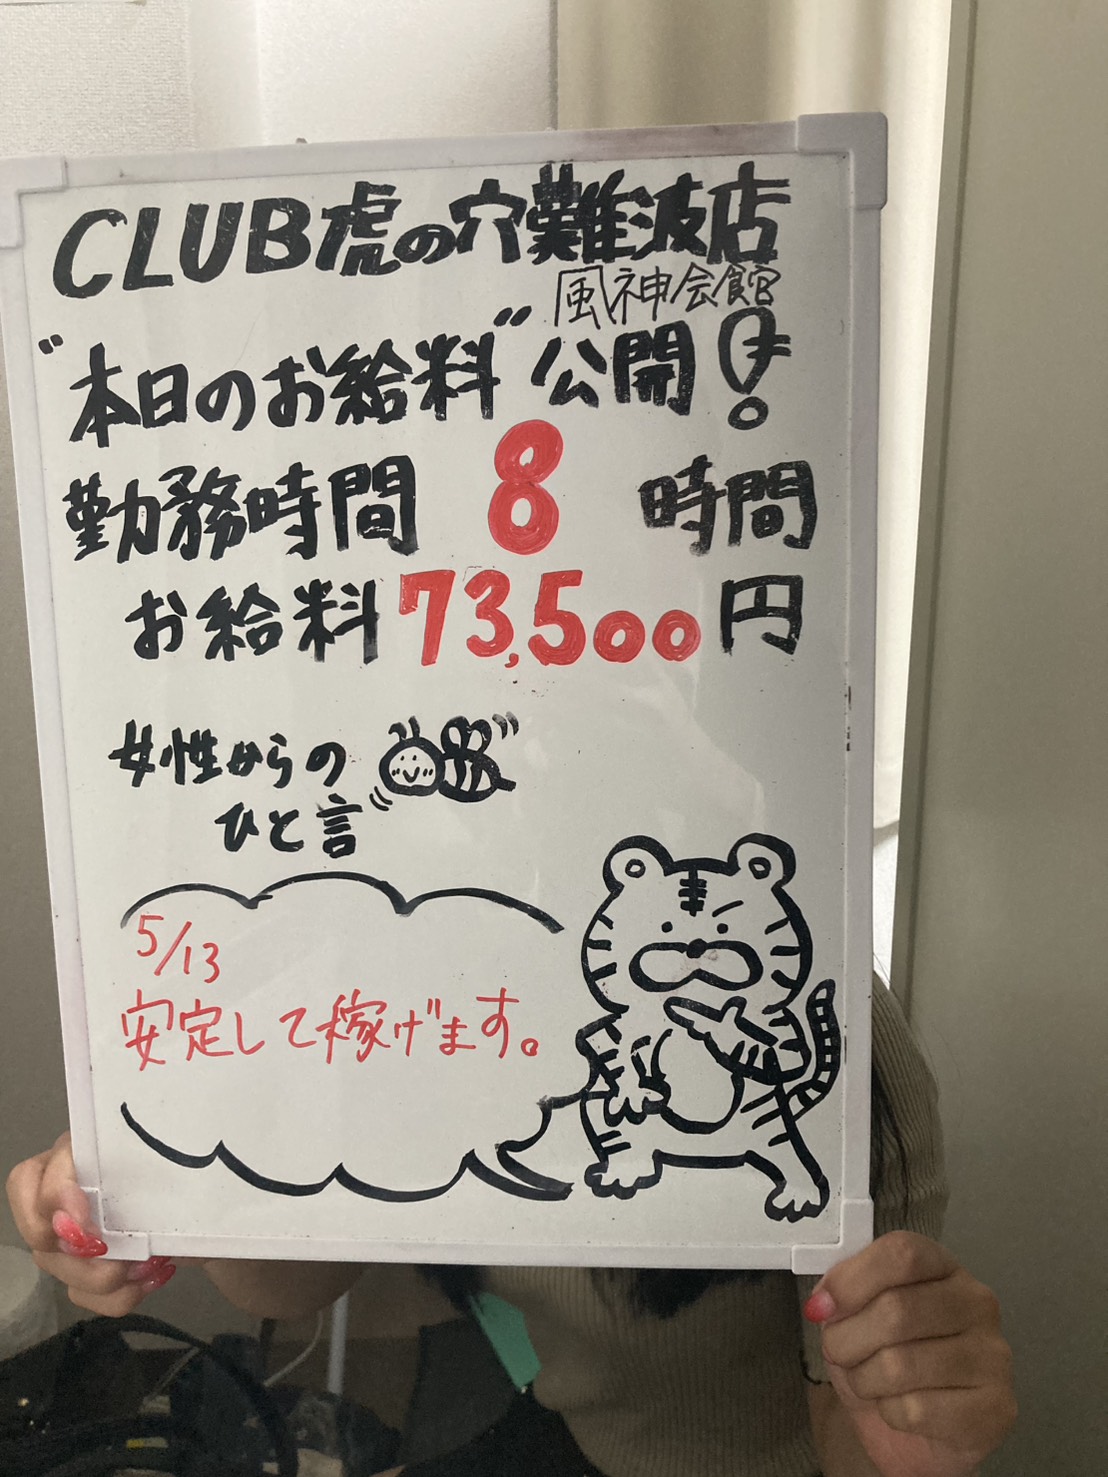 CLUB虎の穴難波店
風神会館
"本日のお給料"公開!
勤務時間 8 時間
お給料 73,500円
女性からの
ひと言
5/13
安定して稼げます。